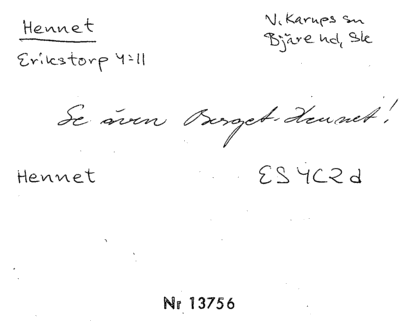 Hennet
V. Karups sn
Bjäre hd, Sk
Erikstorp 4:11
Se även Berget-Hennet!
Hennet
ES 4C2d
Nr 13756